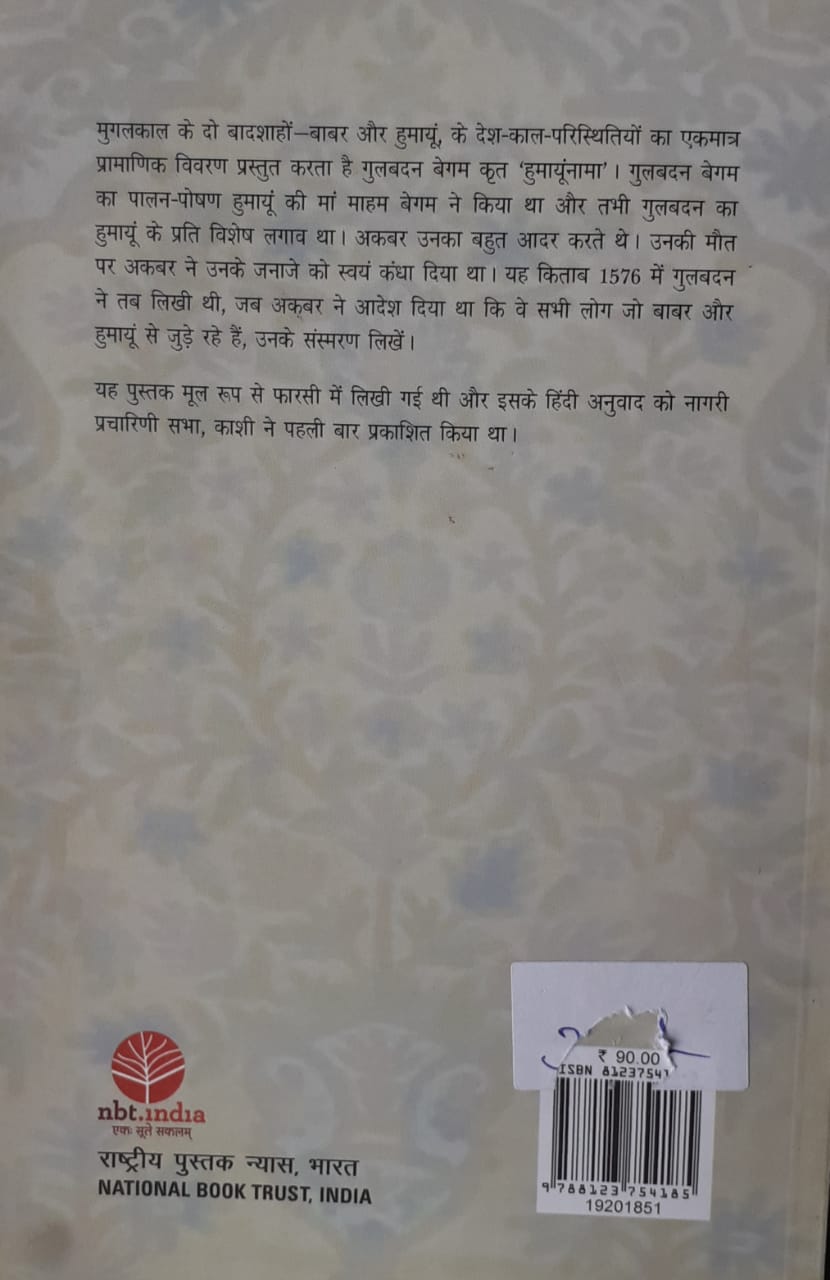 मुगलकाल के दो बादशाहों–बाबर और हुमायूं, के देश-काल-परिस्थितियों का एकमात्र
प्रामाणिक विवरण प्रस्तुत करता है गुलबदन बेगम कृत ‘हुमायूंनामा’। गुलबदन बेगम
का पालन-पोषण हुमायूं की मां माहम बेगम ने किया था और तभी गुलबदन का
हुमायूं के प्रति विशेष लगाव था। अकबर उनका बहुत आदर करते थे। उनकी मौत
पर अकबर ने उनके जनाजे को स्वयं कंधा दिया था। यह किताब 1576 में गुलबदन
ने तब लिखी थी, जब अकबर ने आदेश दिया था कि वे सभी लोग जो बाबर और
हुमायूं से जुड़े रहे हैं, उनके संस्मरण लिखें।
यह पुस्तक मूल रूप से फारसी में लिखी गई थी और इसके हिंदी अनुवाद को नागरी
प्रचारिणी सभा, काशी ने पहली बार प्रकाशित किया था।
₹ 90.00
ISBN 81237541
9 788123 754185
19201851
nbt.india
एकः सूते सकलम्
राष्ट्रीय पुस्तक न्यास, भारत
NATIONAL BOOK TRUST, INDIA